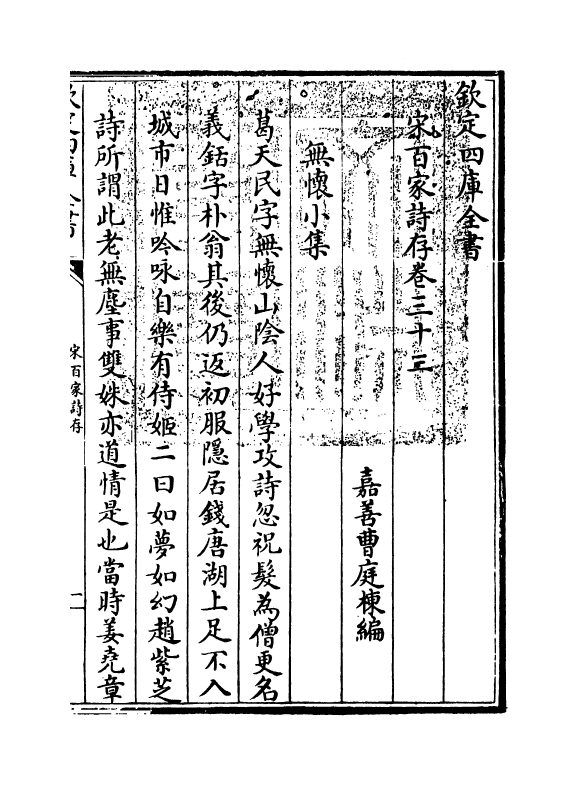 欽定四庫全書
宋百家詩存卷三十三
嘉善曹庭棟編
無懷小集
葛天民字無懷山陰人好學攻詩忽祝髮為僧更名
義銛字朴翁其後仍返初服隱居錢唐湖上足不入
城市日惟吟咏自樂有侍姬二曰如夢如幻趙紫芝
詩所謂此老無塵事雙姝亦道情是也當時姜堯章
宋百家詩存